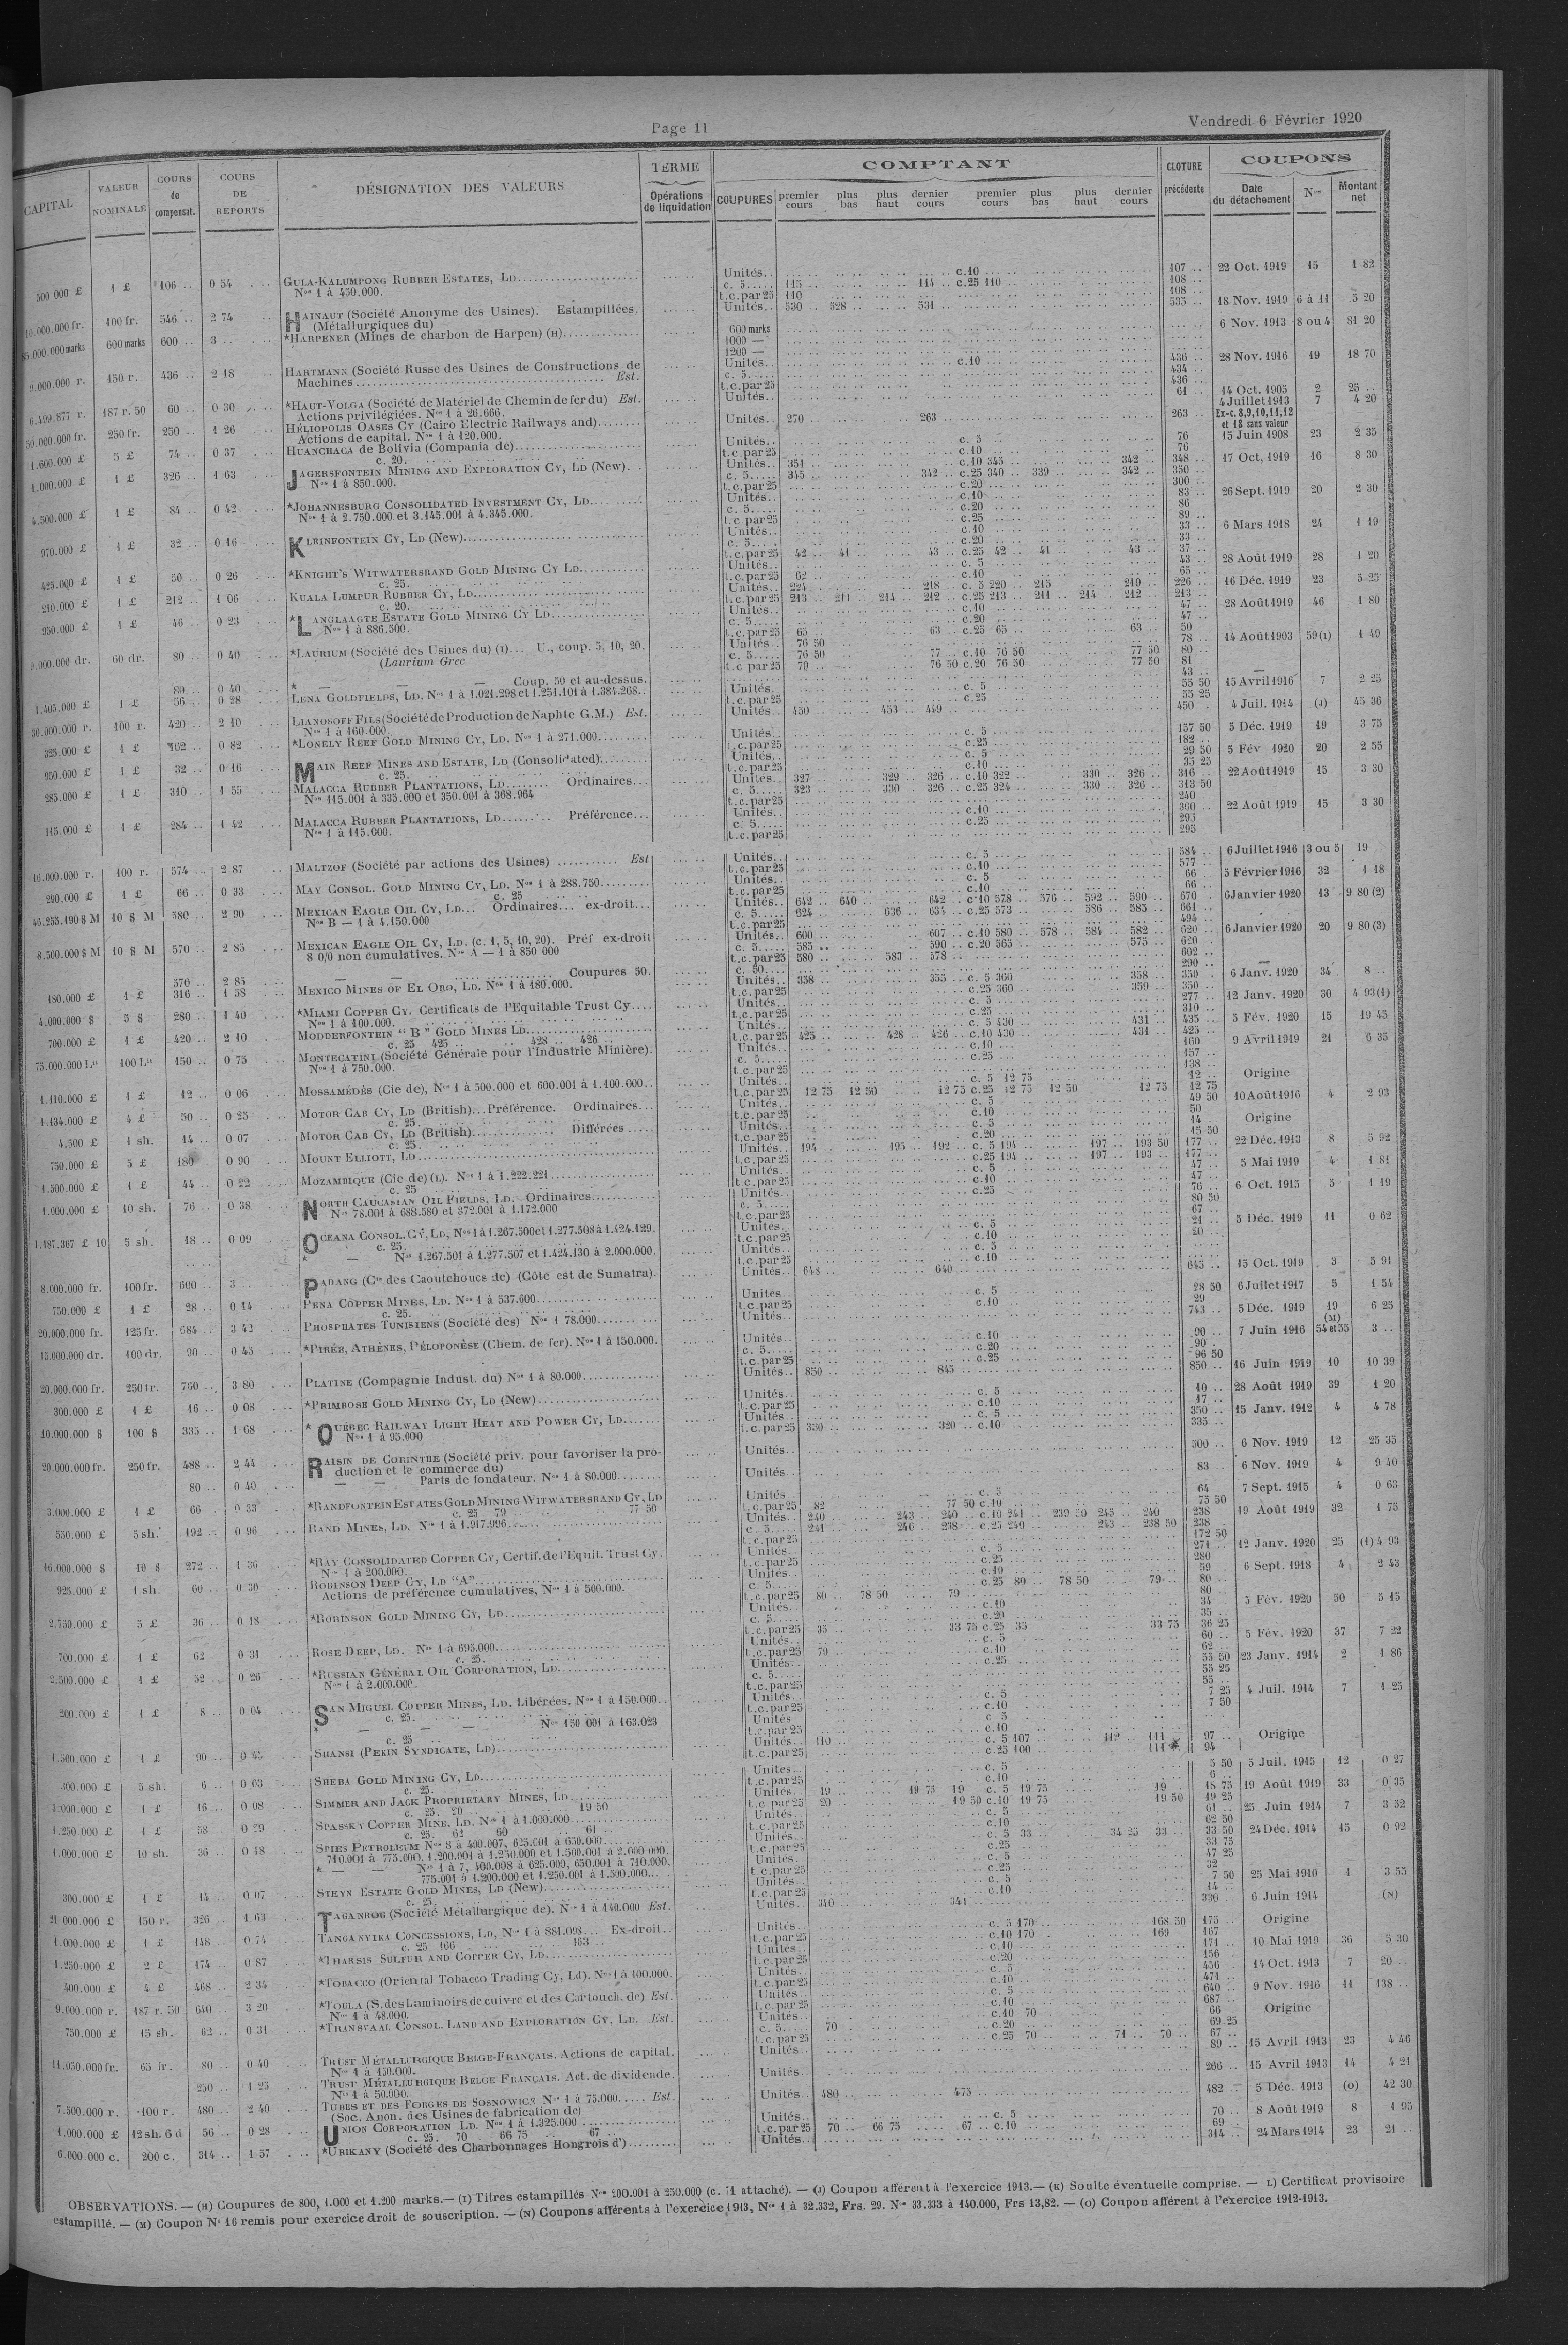 Page 11
Vendredi 6 Février 1920
CAPITAL
VALEUR NOMINALE
COURS de compensat.
COURS DE REPORTS
DÉSIGNATION DES VALEURS
TERME
Opérations de liquidation
COMPTANT
COUPURES premier cours plus bas plus haut dernier cours premier cours plus bas plus haut dernier cours
CLOTURE précédente
COUPONS
Date du détachement Nos Montant net
500 000 £ 1 £ 106 .. 0 54 GULA-KALUMPONG RUBBER ESTATES, LD Unités c.10 107 .. 22 Oct. 1919 15 1 82
Nos 1 à 450.000. c. 5 115 114 .. c.25 110 108 ..
t.c.par 25 110 108 ..
10.000.000 fr. 100 fr. 546 .. 2 74 HAINAUT (Société Anonyme des Usines). Estampillées. Unités 530 .. 528 .. 531 535 .. 18 Nov. 1919 6 à 11 5 20
(Métallurgiques du)
600 marks 600 .. 3 .. *HARPENER (Mines de charbon de Harpen) (H) 600 marks 6 Nov. 1913 8 ou 4 81 20
1000 —
1200 —
150 r. 436 .. 2 18 HARTMANN (Société Russe des Usines de Constructions de Machines Est. Unités c.10 436 .. 28 Nov. 1916 19 18 70
c. 5 434 ..
t.c.par 25 436 ..
6.499.877 r. 187 r. 50 60 .. 0 30 *HAUT-VOLGA (Société de Matériel de Chemin de fer du) Est. Unités 61 .. 14 Oct. 1905 2 25 ..
Actions privilégiées. Nos 1 à 26.666. 4 Juillet 1913 7 4 20
250 fr. 250 .. 1 26 HÉLIOPOLIS OASES CY (Cairo Electric Railways and) Unités 270 263 263 .. Ex-c. 8,9,10,11,12 et 18 sans valeur
Actions de capital. Nos 1 à 120.000.
1.600.000 £ 5 £ 74 .. 0 37 HUANCHACA de Bolivia (Compania de) Unités c. 5 76 15 Juin 1908 23 2 35
c. 20. t.c.par 25 c.10 76
1.000.000 £ 1 £ 326 .. 1 63 JAGERSFONTEIN MINING AND EXPLORATION CY, LD (New). Unités 351 c.10 345 342 .. 348 .. 17 Oct. 1919 16 8 30
Nos 1 à 850.000. c. 5 345 342 .. c.25 340 .. 339 342 .. 350 ..
t.c.par 25 c.20 300 ..
4.500.000 £ 1 £ 84 .. 0 42 *JOHANNESBURG CONSOLIDATED INVESTMENT CY, LD Unités c.10 83 .. 26 Sept. 1919 20 2 30
Nos 1 à 2.750.000 et 3.145.001 à 4.345.000. c. 5 c.20 86
t.c.par 25 c.25 89 ..
970.000 £ 1 £ 32 .. 0 16 KLEINFONTEIN CY, LD (New) Unités c.10 33 .. 6 Mars 1918 24 1 19
c. 5 c.20 33 ..
t.c.par 25 42 .. 41 .. 43 .. c.25 42 .. 41 .. 43 .. 37 ..
425.000 £ 1 £ 50 .. 0 26 *KNIGHT'S WITWATERSRAND GOLD MINING CY LD Unités c. 5 43 .. 28 Août 1919 28 1 20
c. 25. t.c.par 25 62 .. c.10 65 ..
210.000 £ 1 £ 212 .. 1 06 KUALA LUMPUR RUBBER CY, LD Unités 224 .. 218 .. c. 5 220 .. 215 219 .. 226 .. 16 Déc. 1919 23 5 25
c. 20. t.c.par 25 213 .. 211 .. 214 .. 212 .. c.25 213 .. 211 .. 214 .. 212 .. 213 ..
950.000 £ 1 £ 46 .. 0 23 *LANGLAAGTE ESTATE GOLD MINING CY LD Unités c.10 47 .. 28 Août 1919 46 1 80
Nos 1 à 886.500. c. 5 c.20 47 ..
t.c.par 25 65 .. 63 .. c.25 65 .. 63 .. 50
9.000.000 dr. 60 dr. 80 .. 0 40 *LAURIUM (Société des Usines du) (I) U., coup. 5, 10, 20. Unités 76 50 78 .. 14 Août 1903 59(1) 1 49
(Laurium Grec c. 5 76 50 77 .. c.10 76 50 77 50 80 ..
t.c par 25 79 .. 76 50 c.20 76 50 77 50 81
80 .. 0 40 * — — — Coup. 50 et au-dessus. 43 .. —
1.405.000 £ 1 £ 56 .. 0 28 LENA GOLDFIELDS, LD. Nos 1 à 1.021.298 et 1.251.101 à 1.384.268. Unités c. 5 55 50 15 Avril 1916 7 2 25
t.c.par 25 c.25 55 25
30.000.000 r. 100 r. 420 .. 2 10 LIANOSOFF FILS (Société de Production de Naphte G.M.) Est. Unités 450 453 .. 449 450 .. 4 Juil. 1914 (J) 45 36
Nos 1 à 160.000.
325.000 £ 1 £ 162 .. 0 82 *LONELY REEF GOLD MINING CY, LD. Nos 1 à 271.000 Unités c. 5 157 50 5 Déc. 1919 19 3 75
t.c.par 25 c.25 182 ..
950.000 £ 1 £ 32 .. 0 16 MAIN REEF MINES AND ESTATE, LD (Consolidated) Unités c. 5 29 50 5 Fév 1920 20 2 55
c. 25. t.c.par 25 c.10 35 25
285.000 £ 1 £ 310 .. 1 55 MALACCA RUBBER PLANTATIONS, LD Ordinaires Unités 327 329 .. 326 .. c.10 322 330 .. 326 .. 316 .. 22 Août 1919 15 3 30
Nos 115.001 à 335.000 et 350.001 à 368.964 c. 5 323 330 .. 326 .. c.25 324 330 .. 326 .. 313 50
t.c.par 25 240
115.000 £ 1 £ 284 .. 1 42 MALACCA RUBBER PLANTATIONS, LD Préférence Unités c.10 300 .. 22 Août 1919 15 3 30
Nos 1 à 115.000. c. 5 c.25 295
t.c.par 25 295
16.000.000 r. 100 r. 574 .. 2 87 MALTZOF (Société par actions des Usines) Est Unités c. 5 584 .. 6 Juillet 1916 3 ou 5 19
t.c.par 25 c.10 577 ..
290.000 £ 1 £ 66 .. 0 33 MAY CONSOL. GOLD MINING CY, LD. Nos 1 à 288.750 Unités c. 5 66 .. 5 Février 1916 32 1 18
c. 25 t.c.par 25 c.10 66 ..
46.255.490 $ M 10 $ M 580 .. 2 90 MEXICAN EAGLE OIL CY, LD Ordinaires ex-droit Unités 642 .. 640 .. 642 .. c.10 578 .. 576 .. 592 .. 590 .. 670 .. 6 Janvier 1920 43 9 80 (2)
Nos B — 1 à 4.150.000 c. 5 624 636 .. 634 .. c.25 573 586 .. 585 .. 661
t.c.par 25 494 ..
8.500.000 $ M 10 $ M 570 .. 2 85 MEXICAN EAGLE OIL CY, LD. (c. 1, 5, 10, 20). Préf ex-droit Unités 600 607 .. c.10 580 .. 578 .. 584 .. 582 .. 620 .. 6 Janvier 1920 20 9 80 (3)
8 0/0 non cumulatives. Nos A — 1 à 850 000 c. 5 585 .. 590 .. c.20 565 575 .. 620 ..
t.c.par 25 580 583 .. 578 .. 602 ..
570 .. 2 85 — — Coupures 50. c. 50 290 .. —
180.000 £ 1 £ 316 .. 1 58 MEXICO MINES OF EL ORO, LD. Nos 1 à 180.000. Unités 358 355 .. c. 5 360 358 .. 350 .. 6 Janv. 1920 34 8 ..
t.c.par 25 c.25 360 359 .. 350 ..
4.000.000 $ 5 $ 280 .. 1 40 *MIAMI COPPER CY. Certificats de l'Equitable Trust Cy Unités c. 5 277 .. 12 Janv. 1920 30 4 93(1)
Nos 1 à 100.000. t.c.par 25 c.25 310 ..
700.000 £ 1 £ 420 .. 2 10 MODDERFONTEIN "B" GOLD MINES LD Unités c. 5 430 431 .. 435 .. 5 Fév. 1920 15 19 45
c. 25 425 .. 428 .. 426 .. t.c.par 25 425 428 .. 426 .. c.10 430 431 .. 425 ..
75.000.000 Les 100 Les 150 .. 0 75 MONTECATINI (Société Générale pour l'Industrie Minière). Unités c.10 160 9 Avril 1919 21 6 35
Nos 1 à 750.000. c. 5 c.25 157 ..
t.c.par 25 138 ..
1.110.000 £ 1 £ 12 .. 0 06 MOSSAMÉDÈS (Cie de), Nos 1 à 500.000 et 600.001 à 1.100.000 Unités c. 5 12 75 12 .. Origine
t.c.par 25 12 75 12 50 12 75 c.25 12 75 12 50 12 75 12 75
1.134.000 £ 4 £ 50 .. 0 25 MOTOR CAB CY, LD (British) Préférence. Ordinaires Unités c. 5 49 50 10 Août 1916 4 2 93
c. 25. t.c.par 25 c.10 50
4.500 £ 1 sh. 14 .. 0 07 MOTOR CAB CY, LD (British) Différées Unités c. 5 14 Origine
c. 25. t.c.par 25 c.20 15 50
750.000 £ 5 £ 180 0 90 MOUNT ELLIOTT, LD Unités 194 195 .. 192 .. c. 5 194 197 .. 193 50 177 .. 22 Déc. 1913 8 5 92
t.c.par 25 c.25 194 197 .. 193 .. 177 ..
1.500.000 £ 1 £ 44 .. 0 22 MOZAMBIQUE (Cie de) (L). Nos 1 à 1.222.221 Unités c. 5 47 .. 5 Mai 1919 4 1 81
c. 25 t.c.par 25 c.10 47 ..
1.000.000 £ 10 sh. 76 .. 0 38 NORTH CAUCASIAN OIL FIELDS, LD. Ordinaires Unités c.25 76 .. 6 Oct. 1915 5 1 19
Nos 78.001 à 688.580 et 872.001 à 1.172.000 c. 5 80 50
t.c.par 25 67 ..
1.487.367 £ 10 5 sh. 18 .. 0 09 OCEANA CONSOL. CY, LD, Nos 1 à 1.267.500 et 1.277.508 à 1.424.129. Unités c. 5 21 .. 5 Déc. 1919 11 0 62
c. 25. t.c.par 25 c.10 20 ..
* — Nos 1.267.501 à 1.277.507 et 1.424.130 à 2.000.000. Unités c. 5
t.c.par 25 c.10
8.000.000 fr. 100 fr. 600 .. 3 PADANG (Cie des Caoutchoucs de) (Côte est de Sumatra). Unités 648 640 645 .. 15 Oct. 1919 3 5 91
750.000 £ 1 £ 28 .. 0 14 PENA COPPER MINES, LD. Nos 1 à 537.600 Unités c. 5 28 50 6 Juillet 1917 5 1 54
c. 25. t.c.par 25 c.10 29
20.000.000 fr. 125 fr. 684 .. 3 42 PHOSPHATES TUNISIENS (Société des) Nos 1 78.000 Unités 743 .. 5 Déc. 1919 19 (M) 6 25
15.000.000 dr. 100 dr. 90 .. 0 45 *PIRÉE, ATHÈNES, PÉLOPONÈSE (Chem. de fer). Nos 1 à 150.000. Unités c.10 90 .. 7 Juin 1916 54 et 55 3 ..
c. 5 c.20 90 ..
t.c.par 25 c.25 96 50
20.000.000 fr. 250 fr. 760 .. 3 80 PLATINE (Compagnie Indust. du) Nos 1 à 80.000 Unités 850 845 850 .. 16 Juin 1919 10 10 39
300.000 £ 1 £ 16 .. 0 08 *PRIMROSE GOLD MINING CY, LD (New) Unités c. 5 10 .. 28 Août 1919 39 1 20
t.c.par 25 c.10 17 ..
10.000.000 $ 100 $ 335 .. 1 68 *QUÉBEC RAILWAY LIGHT HEAT AND POWER CY, LD Unités c. 5 350 .. 15 Janv. 1912 4 4 78
Nos 1 à 95.000 t.c.par 25 330 320 .. c.10 335 ..
20.000.000 fr. 250 fr. 488 .. 2 44 RAISIN DE CORINTHE (Société priv. pour favoriser la production et le commerce du) Unités 500 .. 6 Nov. 1919 12 25 35
80 .. 0 40 — — Parts de fondateur. Nos 1 à 80.000 Unités 83 .. 6 Nov. 1919 4 9 40
3.000.000 £ 1 £ 66 .. 0 33 *RANDFONTEIN ESTATES GOLD MINING WITWATERSRAND CY, LD Unités c. 5 64 7 Sept. 1915 4 0 63
c. 25 79 77 50 t.c.par 25 82 77 50 c.10 75 50
550.000 £ 5 sh. 192 .. 0 96 RAND MINES, LD, Nos 1 à 1.917.996 Unités 240 243 .. 240 .. c.10 241 .. 239 50 245 .. 240 238 19 Août 1919 32 1 75
c. 5 241 246 .. 238 .. c.25 240 243 .. 238 50 238 ..
t.c.par 25 172 50
16.000.000 $ 10 $ 272 .. 1 36 *RAY CONSOLIDATED COPPER CY, Certif. de l'Equit. Trust Cy. Unités c. 5 271 .. 12 Janv. 1920 25 (1) 4 93
Nos 1 à 200.000. t.c.par 25 c.25 280
925.000 £ 1 sh. 60 .. 0 30 ROBINSON DEEP CY, LD "A" Unités c.10 59 6 Sept. 1918 4 2 43
Actions de préférence cumulatives, Nos 1 à 500.000. c. 5 c.25 80 .. 78 50 79 .. 80 ..
t.c.par 25 80 .. 78 50 79 80 ..
2.750.000 £ 5 £ 36 .. 0 18 *ROBINSON GOLD MINING CY, LD Unités c.10 34 5 Fév. 1920 50 5 15
c. 5 c.20 35 ..
t.c.par 25 35 33 75 c.25 35 33 75 36 25
700.000 £ 1 £ 62 .. 0 31 ROSE DEEP, LD. Nos 1 à 695.000 Unités c. 5 60 .. 5 Fév. 1920 37 7 22
c. 25. t.c.par 25 70 c.10 62 ..
2.500.000 £ 1 £ 52 .. 0 26 *RUSSIAN GÉNÉRAL OIL CORPORATION, LD Unités c.25 55 50 23 Janv. 1914 2 1 86
Nos 1 à 2.000.000. c. 5 55 25
t.c.par 25 55 ..
200.000 £ 1 £ 8 .. 0 04 SAN MIGUEL COPPER MINES, LD. Libérées. Nos 1 à 150.000 Unités c. 5 7 25 4 Juil. 1914 7 1 25
c. 25. t.c.par 25 c.10 7 50
* — — — Nos 150 001 à 163.023 Unités c 5
c. 25 t.c.par 25 c.10
1.500.000 £ 1 £ 90 .. 0 45 SHANSI (PEKIN SYNDICATE, LD) Unités 110 c. 5 107 112 .. 111 97 .. Origine
t.c.par 25 c.25 100 111 94
300.000 £ 5 sh. 6 .. 0 03 SHEBA GOLD MINING CY, LD Unités c. 5 5 50 5 Juil. 1915 12 0 27
c. 25. t.c.par 25 c.10 6 ..
3.000.000 £ 1 £ 16 .. 0 08 SIMMER AND JACK PROPRIETARY MINES, LD Unités 19 19 75 19 c. 5 19 75 19 18 75 19 Août 1919 33 0 35
c. 25. 20 19 50 t.c par 25 20 19 50 c.10 19 75 19 50 19 25
1.250.000 £ 1 £ 58 0 29 SPASSKY COPPER MINE, LD. Nos 1 à 1.000.000 Unités c. 5 61 .. 25 Juin 1914 7 3 52
c. 25. 62 60 61 t.c.par 25 c.10 62 50
1.000.000 £ 10 sh. 36 .. 0 18 SPIES PETROLEUM Nos 8 à 400.007, 625.001 à 650.000 Unités c. 5 33 34 25 33 33 50 24 Déc. 1914 15 0 92
710.001 à 775.000, 1.200.001 à 1.250.000 et 1.500.001 à 2.000 000. t.c.par 25 c.25 33 75
* — — Nos 1 à 7, 400.008 à 625.000, 650.001 à 710.000, Unités c. 5 47 25
775.001 à 1.200.000 et 1.250.001 à 1.500.000 t.c.par 25 c.25 32
300.000 £ 1 £ 14 0 07 STEYN ESTATE GOLD MINES, LD (New) Unités c. 5 7 50 25 Mai 1910 1 3 55
c. 25. t.c.par 25 c.10 14 ..
21 000.000 £ 150 r. 326 1 63 TAGANROG (Société Métallurgique de). Nos 1 à 140.000 Est. Unités 340 341 330 .. 6 Juin 1914 (N)
1.000.000 £ 1 £ 148 0 74 TANGANYIKA CONCESSIONS, LD, Nos 1 à 881.098 Ex-droit Unités c. 5 170 168 50 175 Origine
c. 25 166 163 t.c.par 25 c.10 170 169 167
1.250.000 £ 2 £ 174 0 87 *THARSIS SULFUR AND COPPER CY, LD Unités c.10 171 .. 10 Mai 1919 36 5 30
t.c.par 25 c.20 156
400.000 £ 4 £ 468 .. 2 34 *TOBACCO (Oriental Tobacco Trading Cy, Ld). Nos 1 à 100.000. Unités c. 5 456 14 Oct. 1913 7 20 ..
t.c.par 25 c.10 471
9.000.000 r. 187 r. 50 640 .. 3 20 *TOULA (S. des Laminoirs de cuivre et des Cartouch. de) Est. Unités c. 5 640 .. 9 Nov. 1916 11 138 ..
Nos 1 à 48.000. t.c.par 25 c.10 687 ..
750.000 £ 15 sh. 62 .. 0 31 *TRANSVAAL CONSOL. LAND AND EXPLORATION CY, LD. Est. Unités c.10 70 66 Origine
c. 5 70 c.20 69 25
t.c.par 25 c.25 70 71 .. 70 .. 67 ..
11.050.000 fr. 65 fr. 80 .. 0 40 TRUST MÉTALLURGIQUE BELGE-FRANÇAIS. Actions de capital. Unités 89 .. 15 Avril 1913 23 4 46
Nos 1 à 150.000.
250 .. 1 25 TRUST MÉTALLURGIQUE BELGE FRANÇAIS. Act. de dividende. Unités 266 .. 15 Avril 1913 14 4 21
Nos 1 à 50.000.
7.500.000 r. 100 r. 480 .. 2 40 TUBES ET DES FORGES DE SOSNOWICE Nos 1 à 75.000 Est. Unités 480 475 482 .. 5 Déc. 1913 (O) 42 30
(Soc. Anon. des Usines de fabrication de)
1.000.000 £ 12 sh. 6 d 56 .. 0 28 UNION CORPORATION LD. Nos 1 à 1.325.000 Unités c. 5 70 .. 8 Août 1919 8 1 95
c. 25. 70 66 75 67 .. t.c.par 25 70 .. 66 75 67 .. c.10 69 ..
6.000.000 c. 200 c. 314 .. 1 57 *URIKANY (Société des Charbonnages Hongrois d') Unités 314 .. 24 Mars 1914 23 21 ..
OBSERVATIONS. — (H) Coupures de 800, 1.000 et 1.200 marks. — (I) Titres estampillés Nos 200.001 à 250.000 (c. 1 attaché). — (J) Coupon afférent à l'exercice 1913. — (K) Soulte éventuelle comprise. — L) Certificat provisoire
estampillé. — (M) Coupon No 16 remis pour exercice droit de souscription. — (N) Coupons afférents à l'exercice 1913, Nos 1 à 32.332, Frs. 29. Nos 33.333 à 140.000, Frs 13,82. — (O) Coupon afférent à l'exercice 1912-1913.